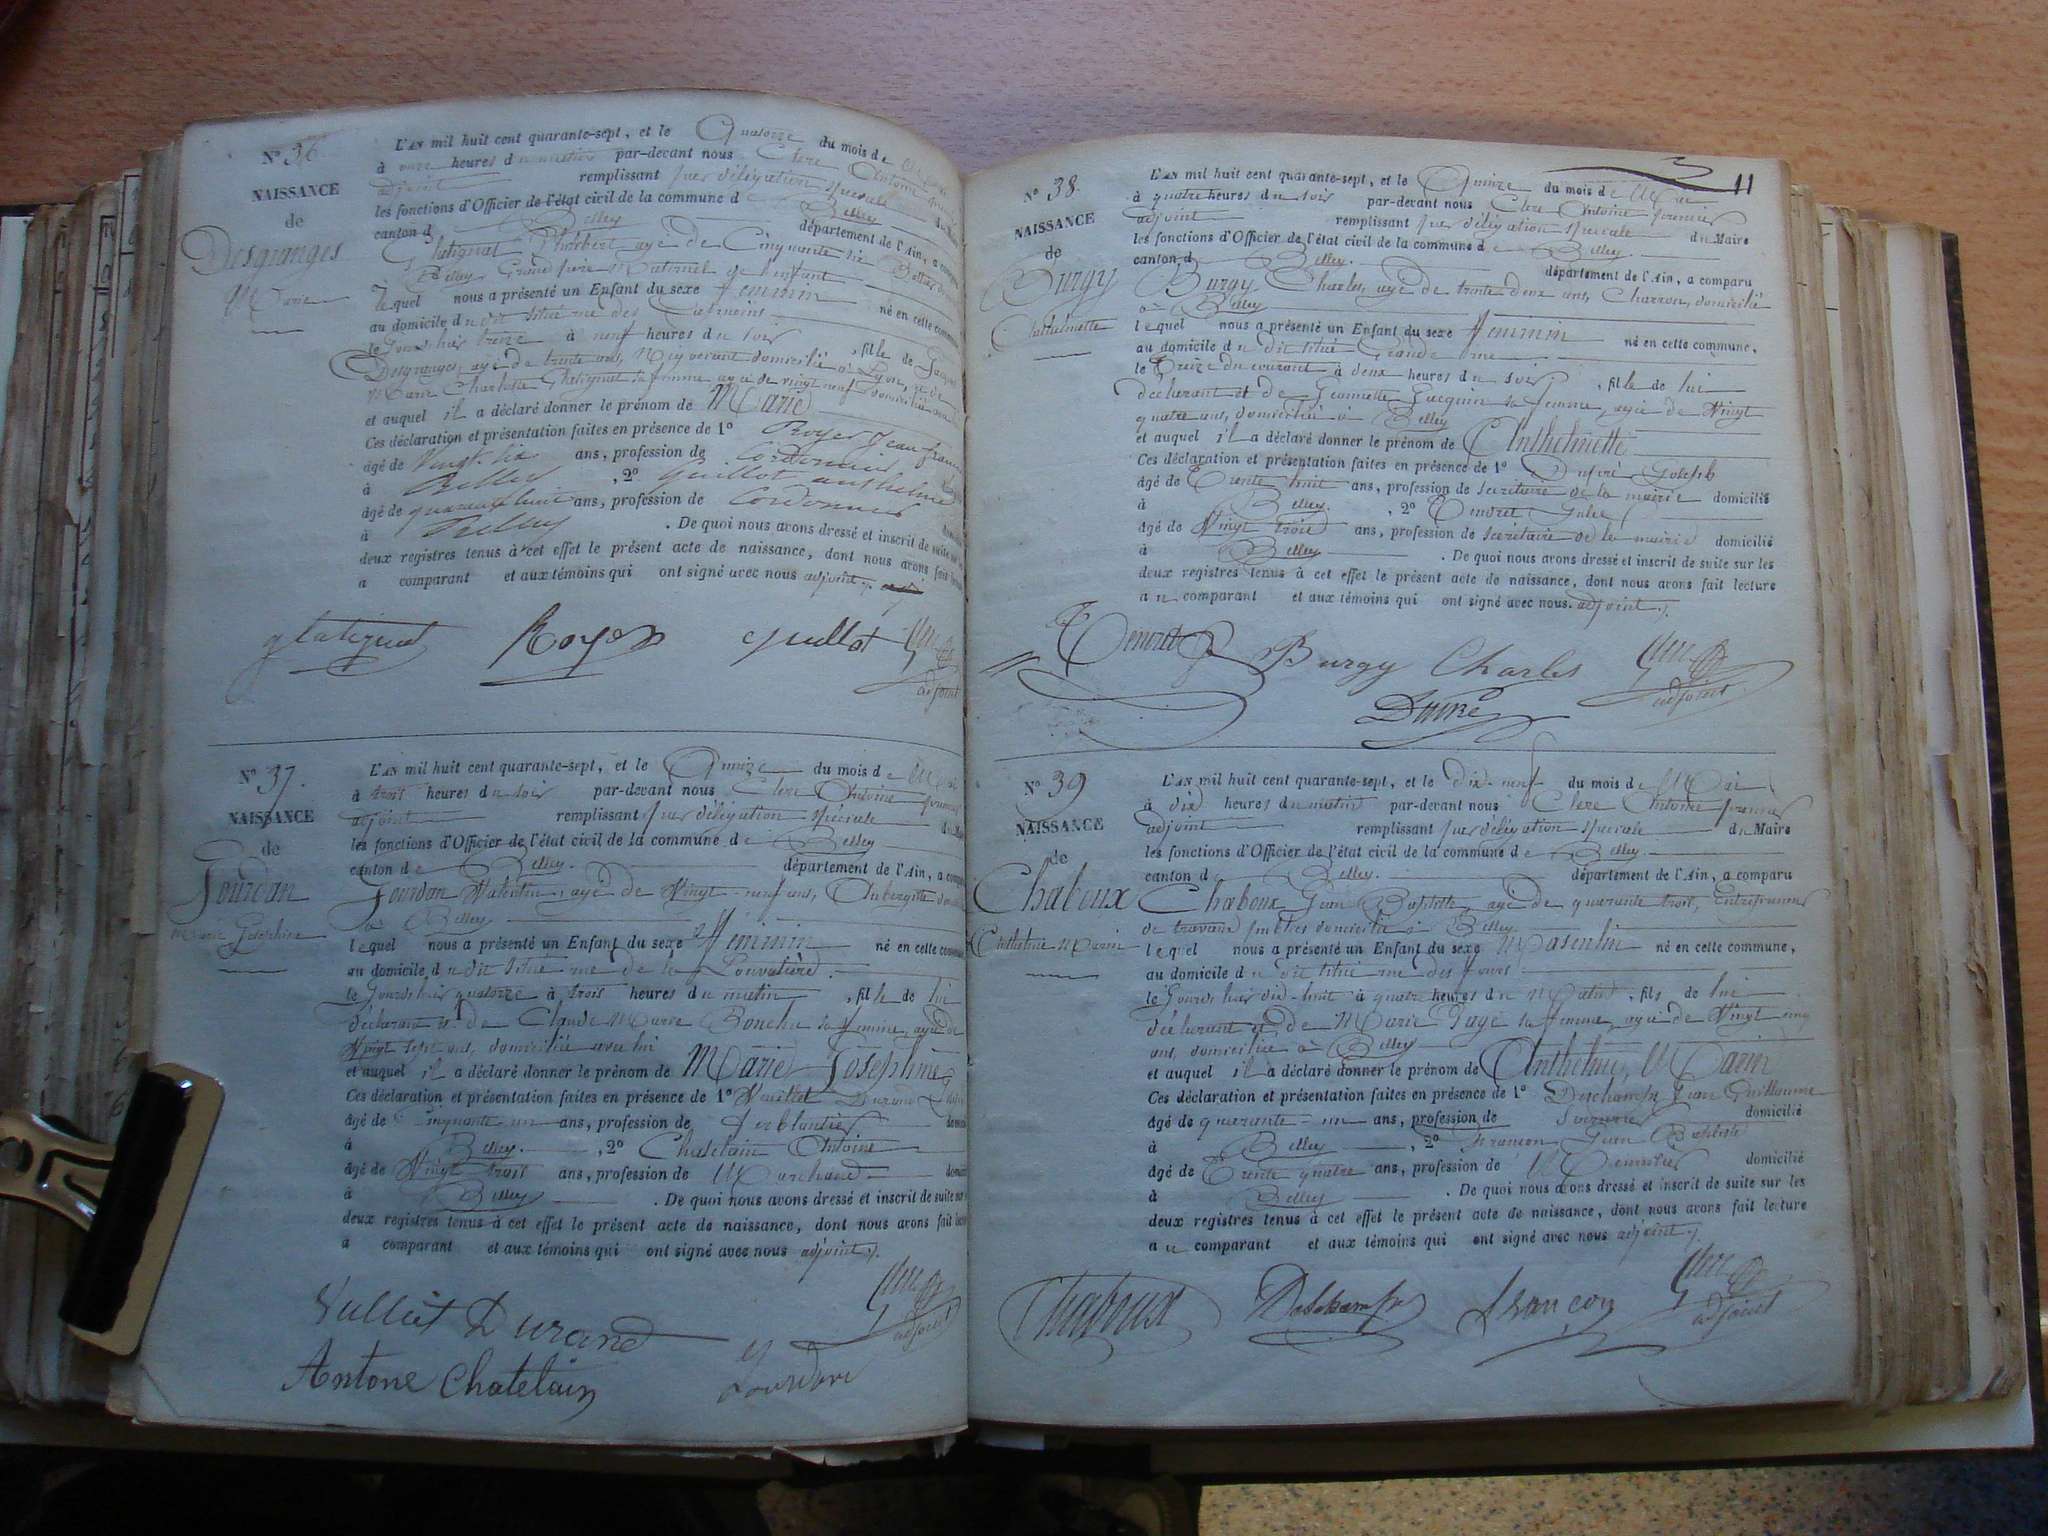 N° 36
NAISSANCE
de
Desgranges
Marie
L'AN mil huit cent quarante-sept, et le Quatorze du mois de
à onze heures du matin par-devant nous Clerc Antoine
adjoint remplissant par délégation spéciale
les fonctions d'Officier de l'état civil de la commune d Belley
canton d Belley département de l'Ain, a
agé de Cinquante six
Belley Grand père Maternel de l'enfant
lequel nous a présenté un Enfant du sexe féminin né en cette
au domicile du dit situé rue des
le Jourd'hui treize à neuf heures du soir, fille de
Desgranges, agé de trente ans, domicilié à Lyon, et de
Marie Charlotte sa femme agée de vingt neuf
et auquel il a déclaré donner le prénom de Marie
Ces déclaration et présentation faites en présence de 1° Royer Jean
âgé de Vingt six ans, profession de Cordonnier
à Belley, 2° Guillot anthelme
âgé de quarante huit ans, profession de Cordonnier
à Belley. De quoi nous avons dressé et inscrit de suite sur
deux registres tenus à cet effet le présent acte de naissance, dont nous avons fait
a comparant et aux témoins qui ont signé avec nous adjoint
Royer Guillot
adjoint
N° 37.
NAISSANCE
de
Jourdan
Marie Joséphine
L'AN mil huit cent quarante-sept, et le Quinze du mois de Mai
à trois heures du soir par-devant nous Clerc Antoine premier
adjoint remplissant par délégation spéciale
les fonctions d'Officier de l'état civil de la commune de Belley
canton de Belley. département de l'Ain, a
Jourdan Valentin, agé de Vingt-neuf ans, Aubergiste
à Belley
lequel nous a présenté un Enfant du sexe féminin né en cette
au domicile du dit situé rue de la
le Jourd'hui quatorze à trois heures du matin, fille de lui
déclarant et de Claude Marie sa femme, agée de
Vingt sept ans, domiciliée avec lui
et auquel il a déclaré donner le prénom de Marie Joséphine
Ces déclaration et présentation faites en présence de 1° Vuillet Durand
âgé de Cinquante un ans, profession de ferblantier
à Belley., 2° Chatelain Antoine
âgé de Vingt trois ans, profession de Marchand
à Belley. De quoi nous avons dressé et inscrit de suite sur
deux registres tenus à cet effet le présent acte de naissance, dont nous avons fait
a comparant et aux témoins qui ont signé avec nous adjoint
Durand
adjoint
Antone Chatelain
11
N° 38.
NAISSANCE
de
Burgy
Anthelmette
L'AN mil huit cent quarante-sept, et le Quinze du mois de Mai
à quatre heures du soir par-devant nous Clerc Antoine premier
adjoint remplissant par délégation spéciale du Maire
les fonctions d'Officier de l'état civil de la commune de Belley.
canton d Belley. département de l'Ain, a comparu
Burgy Charles, agé de trente deux ans, Charron, domicilié
à Belley
lequel nous a présenté un Enfant du sexe féminin né en cette commune,
au domicile du dit situé Grande rue
le Treize du courant à deux heures du soir, fille de lui
déclarant et de Jeannette Jacquin sa femme, agée de Vingt
quatre ans, domiciliée à Belley
et auquel il a déclaré donner le prénom de Anthelmette
Ces déclaration et présentation faites en présence de 1° Dupré Joseph
âgé de Trente huit ans, profession de secrétaire de la mairie domicilié
à Belley., 2° Tendret Jules
âgé de Vingt trois ans, profession de secrétaire de la mairie domicilié
à Belley. De quoi nous avons dressé et inscrit de suite sur les
deux registres tenus à cet effet le présent acte de naissance, dont nous avons fait lecture
au comparant et aux témoins qui ont signé avec nous adjoint
Tendret Burgy Charles
adjoint
Dupré
N° 39
NAISSANCE
de
Chaboux
Anthelme Marin
L'AN mil huit cent quarante-sept, et le dix-neuf du mois de Mai
à dix heures du matin par-devant nous Clerc Antoine premier
adjoint remplissant par délégation spéciale du Maire
les fonctions d'Officier de l'état civil de la commune de Belley.
canton d Belley. département de l'Ain, a comparu
Chaboux Jean Baptiste, agé de quarante trois, Entrepreneur
de travaux publics domicilié à Belley
lequel nous a présenté un Enfant du sexe Masculin né en cette commune,
au domicile du dit situé rue des fours
le Jourd'hui dix-huit à quatre heures du Matin, fils de lui
déclarant et de Marie Page sa femme, agée de Vingt cinq
ans, domiciliée à Belley
et auquel il a déclaré donner le prénom de Anthelme, Marin
Ces déclaration et présentation faites en présence de 1° Deschamps Jean Guillaume
âgé de quarante-un ans, profession de Serrurier domicilié
à Belley, 2° Françon Jean Baptiste
âgé de Trente quatre ans, profession de Menuisier domicilié
à Belley. De quoi nous avons dressé et inscrit de suite sur les
deux registres tenus à cet effet le présent acte de naissance, dont nous avons fait lecture
au comparant et aux témoins qui ont signé avec nous adjoint
Chaboux Deschamps françon
adjoint